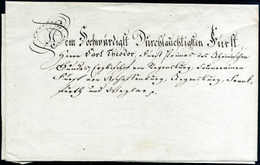 Dem Hochwürdigst Durchlauchtigsten Fürst
Herrn Carl Theodor, Fürst Primas des Rheinischen
Bundes, Erzbischof von Regensburg, Souverainen
Fürst von Aschaffenburg, Regensburg, Frank-
furth und Wetzlar p.